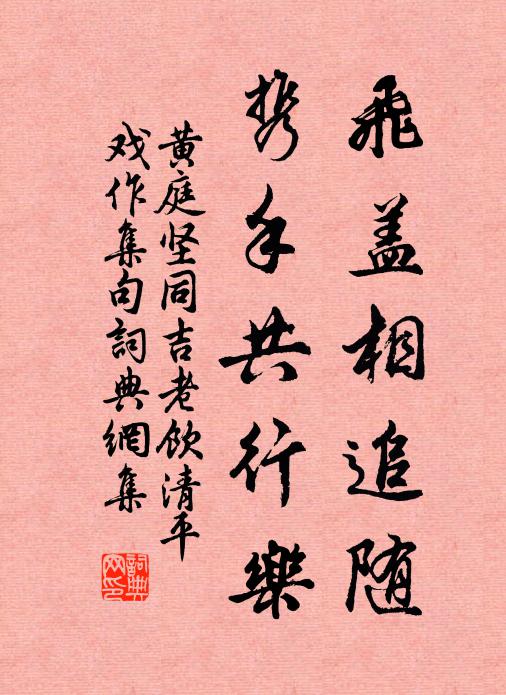 飛盖相追随
携手共行樂
黄庭坚同吉老飲清平
戏作集句詞典網集
詞典網印